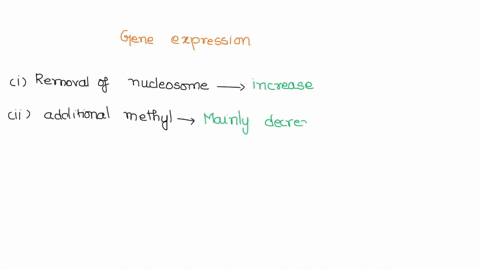 Gene expression
(i) Removal of nucleosome → increase
(ii) additional methyl → Mainly decre